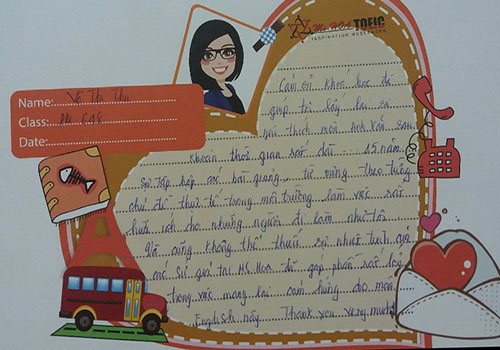 Ms HOA TOEIC
INSPIRATION
Name: Võ Thị Thu
Class:
Date:
Cảm ơn khóa học đã
giúp tôi lấy lại sự
yêu thích môn Anh văn sau
khoản thời gian rất dài 15 năm.
Sự tập hợp các bài giảng, từ vựng theo từng
chủ đề thực tế trong môi trường làm việc rất
hữu ích cho những người đi làm như tôi.
Và cũng không thể thiếu sự nhiệt tình của
cô. Sứ giả tại Ms Hoa đã góp phần rất lớn
trong việc mang lại cảm hứng cho môn
English này. Thank you very much